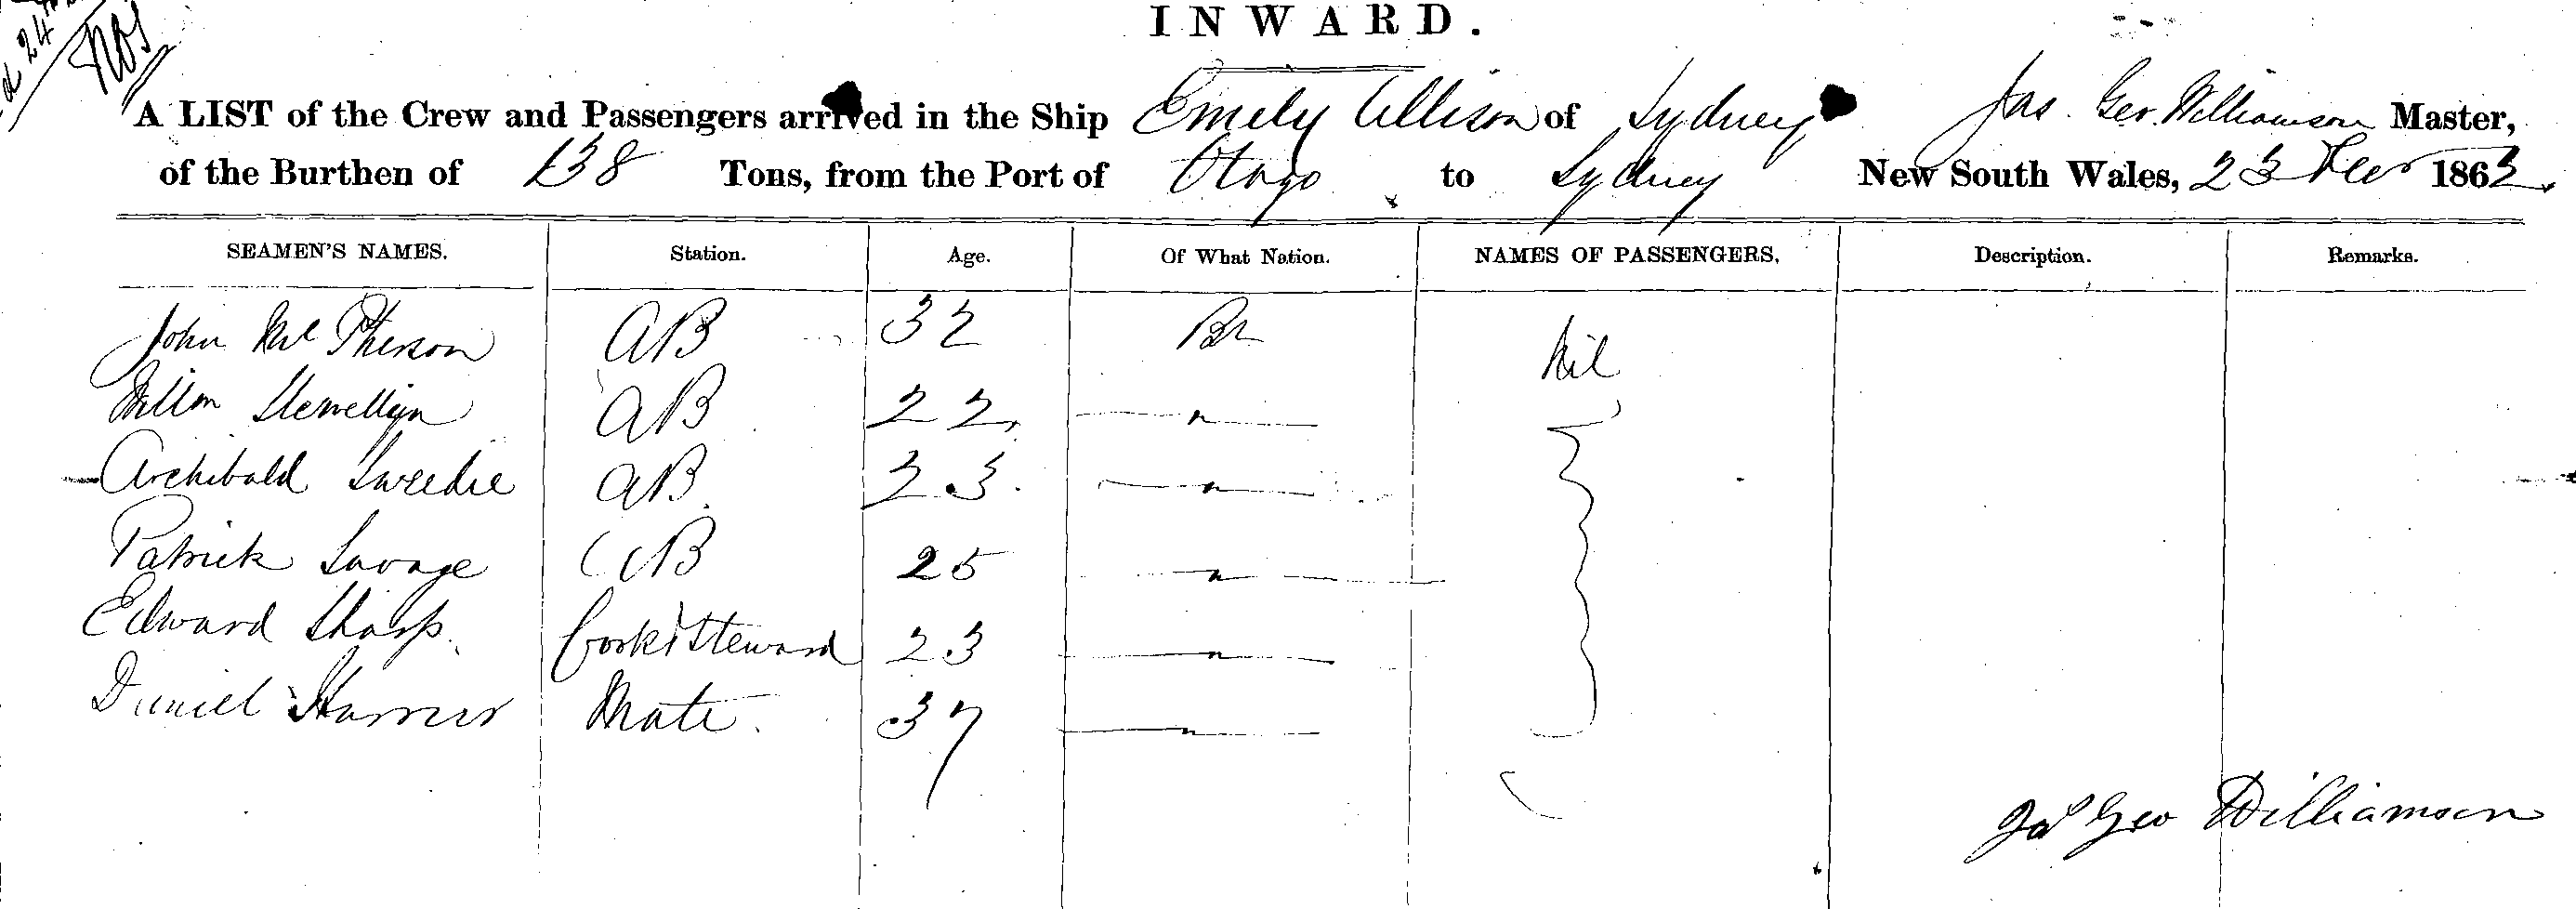 24th
INWARD.
A LIST of the Crew and Passengers arrived in the Ship Emily Allison of Sydney Jas. Geo. Williamson Master,
of the Burthen of 138 Tons, from the Port of Otago to Sydney New South Wales, 23 1863.
SEAMEN'S NAMES. Station. Age. Of What Nation. NAMES OF PASSENGERS. Description. Remarks.
John McPherson AB 32 Br Nil
Willm Llewellyn AB 22 — " —
Archibald Sweedie AB 23 — " —
Patrick Savage AB 25 — " —
Edward Sharp. Cook & Steward 23 — " —
Daniel Mate. 37 — " —
Jas Geo Williamson